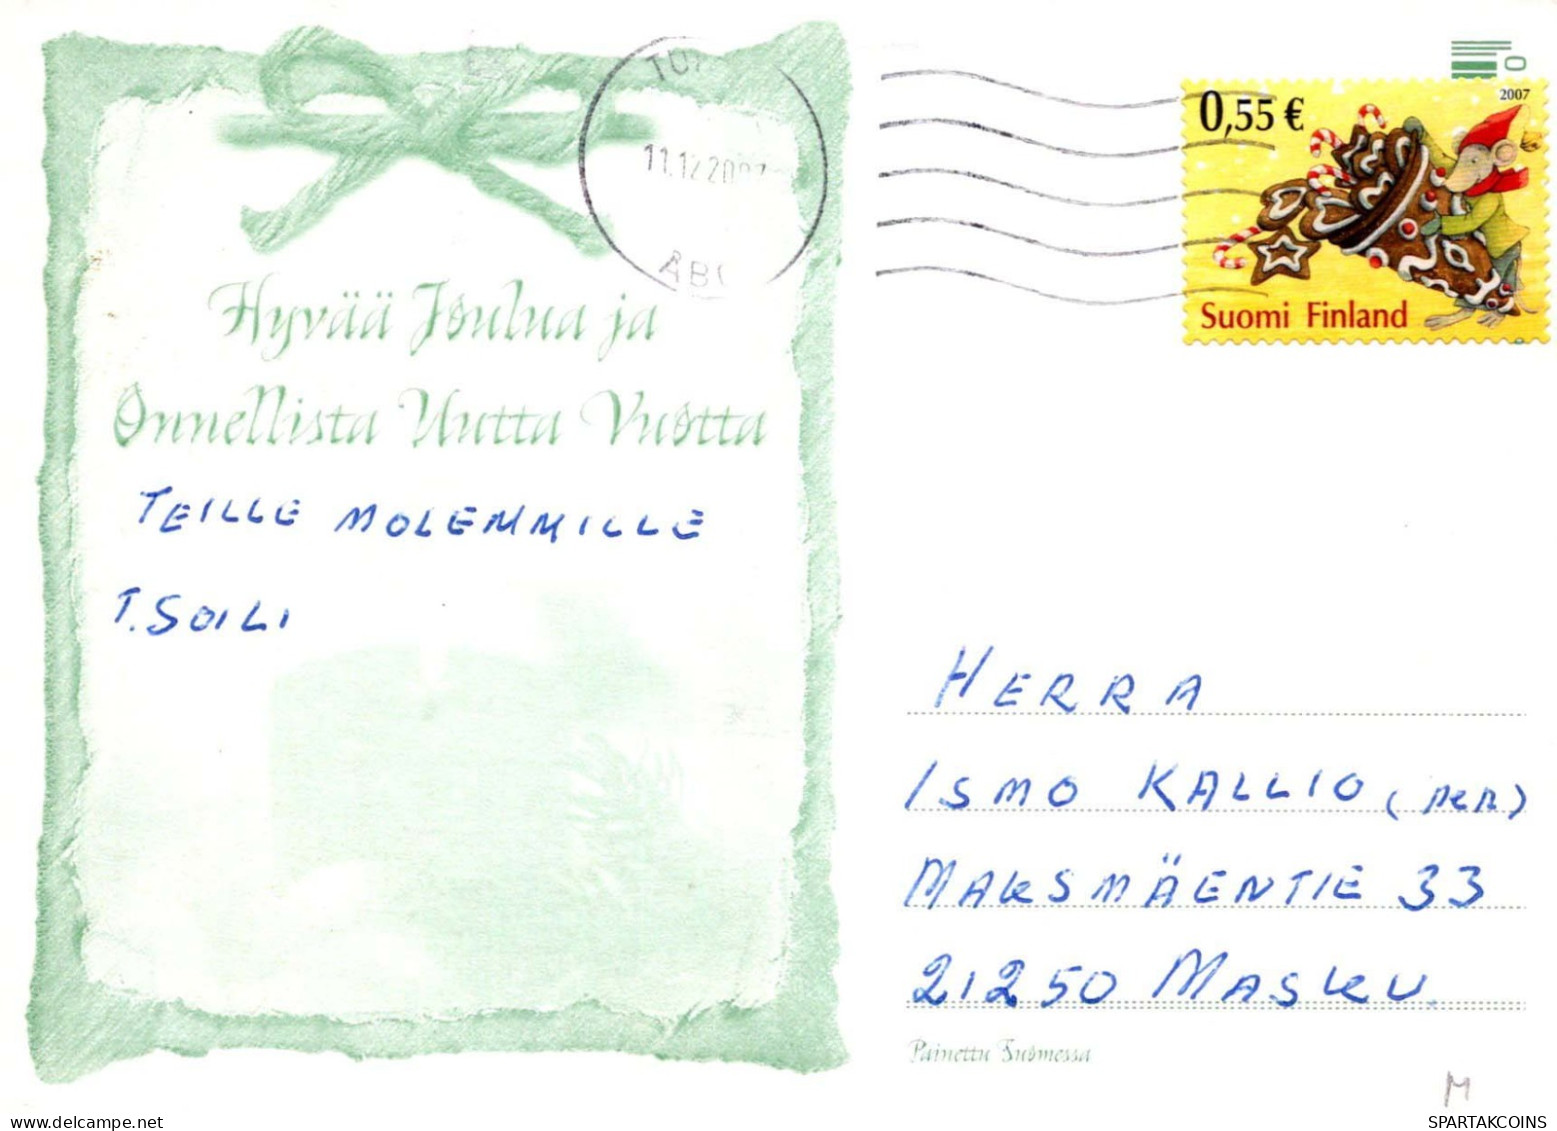 Hyvää Joulua ja
Onnellista Uutta Vuotta
TEILLE MOLEMMILLE
T. SOILI
11.12.2007
0,55 €
2007
Suomi Finland
HERRA
ISMO KALLIO (PER)
MAKSMÄENTIE 33
21250 MASKU
Painettu Suomessa
M
SPARTAKCOINS